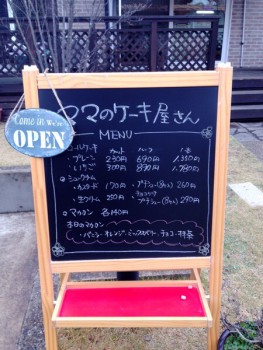 ママのケーキ屋さん
MENU
Come in We're
OPEN
ロールケーキ カット ハーフ 1本
・プレーン 230円 690円 1,350円
・いちご 300円 890円 1,780円
シュークリーム
・カスタード 170円 ・プチシュー(8ヶ入) 260円
・生クリーム ・チョコバナナ
プチシュー(8ヶ入) 290円
マカロン 各140円
本日のマカロン
・バニラ・オレンジ・ミックスベリー・チョコ・抹茶